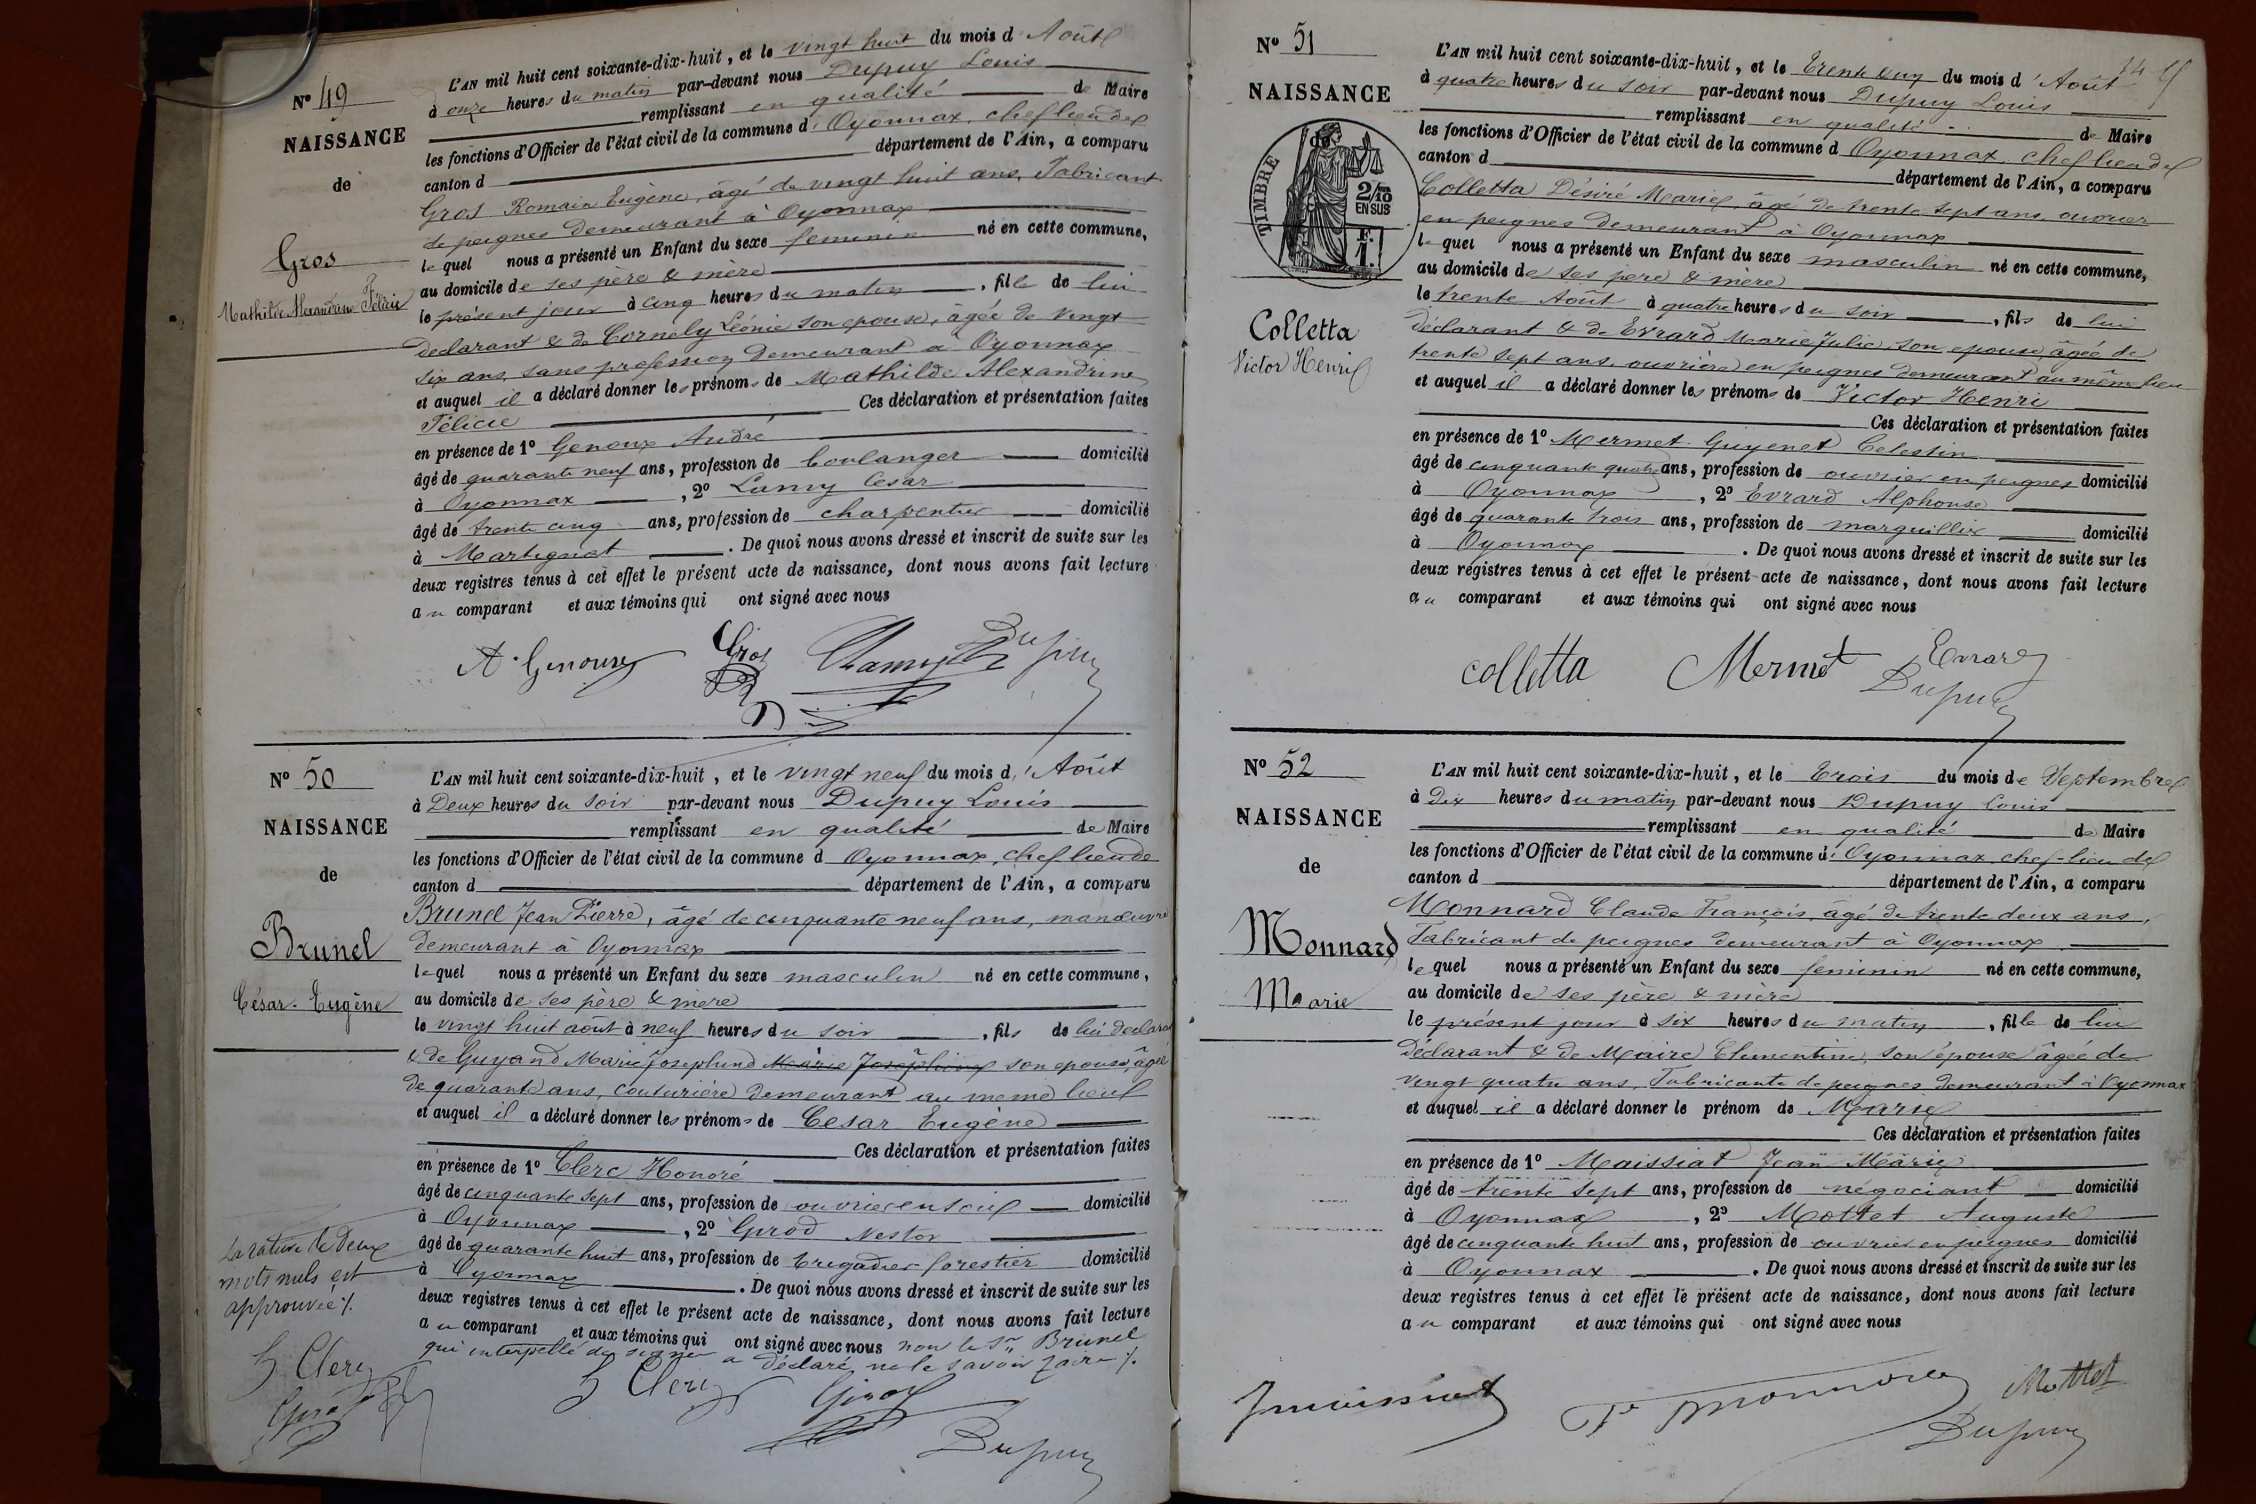 Nº 49
NAISSANCE
de
Gros
Mathilde Alexandrine Félicie
L'AN mil huit cent soixante-dix-huit, et le vingt huit du mois d'Août
à onze heures du matin par-devant nous Dupuy Louis
remplissant en qualité de Maire
les fonctions d'Officier de l'état civil de la commune d'Oyonnax, chef lieu de
canton d département de l'Ain, a comparu
Gros Romain Eugène, âgé de vingt huit ans, Fabricant
de peignes demeurant à Oyonnax
lequel nous a présenté un Enfant du sexe feminin né en cette commune,
au domicile de ses père & mère
le présent jour à cinq heures du matin, fille de lui
déclarant & de Cornaly Léonie son epouse, âgée de vingt
six ans, sans profession demeurant à Oyonnax
et auquel il a déclaré donner les prénoms de Mathilde Alexandrine
Félicie Ces déclaration et présentation faites
en présence de 1º Genoux André
âgé de quarante neuf ans, profession de boulanger domicilié
à Oyonnax, 2º Lamy César
âgé de trente cinq ans, profession de charpentier domicilié
à Martignat. De quoi nous avons dressé et inscrit de suite sur les
deux registres tenus à cet effet le présent acte de naissance, dont nous avons fait lecture
au comparant et aux témoins qui ont signé avec nous
A. Genoux Gros Lamy Dupuy
Nº 50
NAISSANCE
de
Brunel
César. Eugène
L'AN mil huit cent soixante-dix-huit, et le vingt neuf du mois d'Août
à Deux heures du soir par-devant nous Dupuy Louis
remplissant en qualité de Maire
les fonctions d'Officier de l'état civil de la commune d Oyonnax, chef lieu de
canton d département de l'Ain, a comparu
Brunel Jean Pierre, âgé de cinquante neuf ans, manœuvre
demeurant à Oyonnax
lequel nous a présenté un Enfant du sexe masculin né en cette commune,
au domicile de ses père & mère
le vingt huit août à neuf heures du soir, fils de lui déclarant
& de Guyand Marie Josephine Marie Joséphine son epouse, âgée
de quarante ans, couturière demeurant au meme lieu
et auquel il a déclaré donner les prénoms de Cesar Eugène
Ces déclaration et présentation faites
en présence de 1º Clerc Honoré
âgé de cinquante sept ans, profession de ouvrier en scie domicilié
à Oyonnax, 2º Girod Nestor
âgé de quarante huit ans, profession de brigadier forestier domicilié
à Oyonnax. De quoi nous avons dressé et inscrit de suite sur les
deux registres tenus à cet effet le présent acte de naissance, dont nous avons fait lecture
au comparant et aux témoins qui ont signé avec nous non le Sr Brunel
qui interpellé de signer a déclaré ne le savoir faire %.
La rature de deux
mots nuls est
approuvée %.
H Clerc
Girod
H Clerc Girod
Dupuy
Nº 51
NAISSANCE
de
TIMBRE
2/10
EN SUS
F.
1.
Colletta
Victor Henri
14
L'AN mil huit cent soixante-dix-huit, et le Trente un du mois d'Août
à quatre heures du soir par-devant nous Dupuy Louis
remplissant en qualité de Maire
les fonctions d'Officier de l'état civil de la commune d Oyonnax, chef lieu de
canton d département de l'Ain, a comparu
Colletta Désiré Marie, âgé de trente sept ans, ouvrier
en peignes demeurant à Oyonnax
lequel nous a présenté un Enfant du sexe masculin né en cette commune,
au domicile de ses père & mère
le trente Août à quatre heures du soir, fils de lui
déclarant & de Evrard Marie Julie, son epouse, âgée de
trente sept ans, ouvrière en peignes demeurant au même lieu
et auquel il a déclaré donner les prénoms de Victor Henri
Ces déclaration et présentation faites
en présence de 1º Mermet Guyenet Celestin
âgé de cinquante quatre ans, profession de ouvrier en peignes domicilié
à Oyonnax, 2º Evrard Alphonse
âgé de quarante trois ans, profession de marguillier domicilié
à Oyonnax. De quoi nous avons dressé et inscrit de suite sur les
deux registres tenus à cet effet le présent acte de naissance, dont nous avons fait lecture
au comparant et aux témoins qui ont signé avec nous
colletta Mermet Evrard
Dupuy
Nº 52
NAISSANCE
de
Monnard
Marie
L'AN mil huit cent soixante-dix-huit, et le Trois du mois de Septembre
à Dix heures du matin par-devant nous Dupuy Louis
remplissant en qualité de Maire
les fonctions d'Officier de l'état civil de la commune d'Oyonnax, chef-lieu de
canton d département de l'Ain, a comparu
Monnard Claude François, âgé de trente deux ans,
Fabricant de peignes demeurant à Oyonnax
lequel nous a présenté un Enfant du sexe feminin né en cette commune,
au domicile de ses père & mère
le présent jour à six heures du matin, fille de lui
Déclarant & de Maire Clementine, son épouse âgée de
vingt quatre ans, Fabricante de peignes demeurant à Oyonnax
et auquel il a déclaré donner le prénom de Marie
Ces déclaration et présentation faites
en présence de 1º Maissiat Jean Marie
âgé de trente sept ans, profession de négociant domicilié
à Oyonnax, 2º Mottet Auguste
âgé de cinquante huit ans, profession de ouvrier en peignes domicilié
à Oyonnax. De quoi nous avons dressé et inscrit de suite sur les
deux registres tenus à cet effet le présent acte de naissance, dont nous avons fait lecture
au comparant et aux témoins qui ont signé avec nous
Jmaissiat Fs monnard Mottet
Dupuy